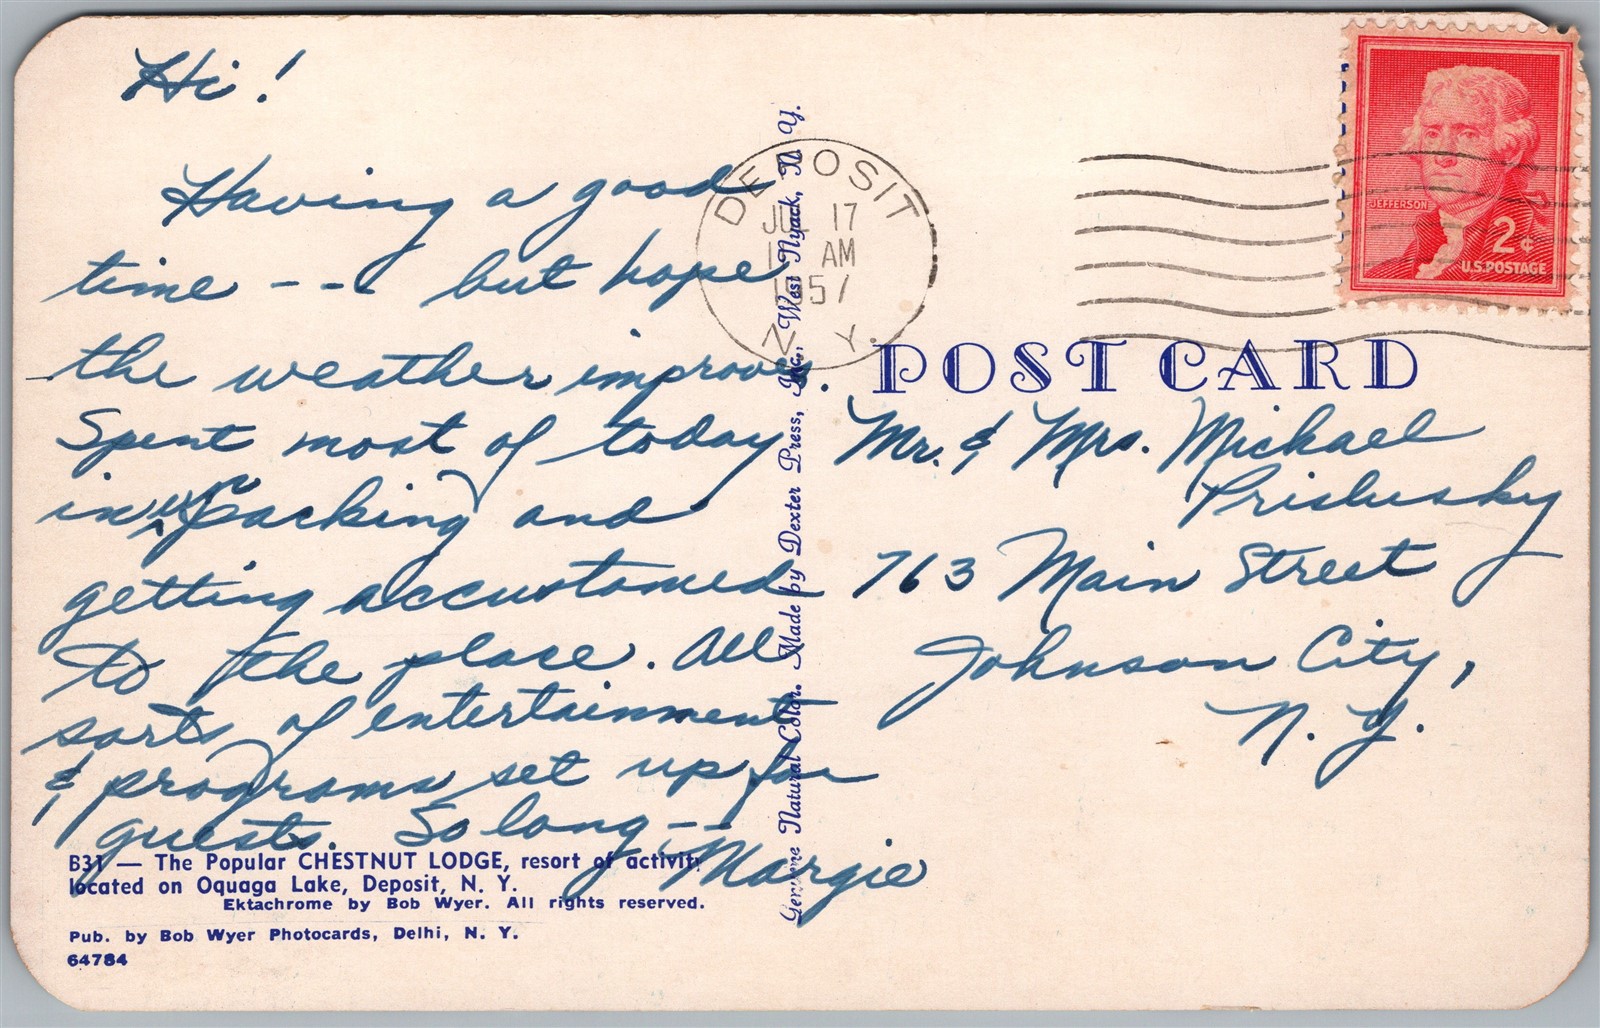 Hi!
Having a good
time --- but hope
the weather improves.
Spent most of today
in unpacking and
getting accustomed
to the place. All
sorts of entertainment
& programs set up for
guests. So long --
Margie
B31 — The Popular CHESTNUT LODGE, resort of activity
located on Oquaga Lake, Deposit, N. Y.
Ektachrome by Bob Wyer. All rights reserved.
Pub. by Bob Wyer Photocards, Delhi, N. Y.
64784
Genuine Natural Color. Made by Dexter Press, Inc., West Nyack, N. Y.
DEPOSIT
JUL 17
AM
1957
N. Y.
JEFFERSON
2¢
U.S. POSTAGE
POST CARD
Mr. & Mrs. Michael
Prislusky
763 Main Street
Johnson City,
N. Y.